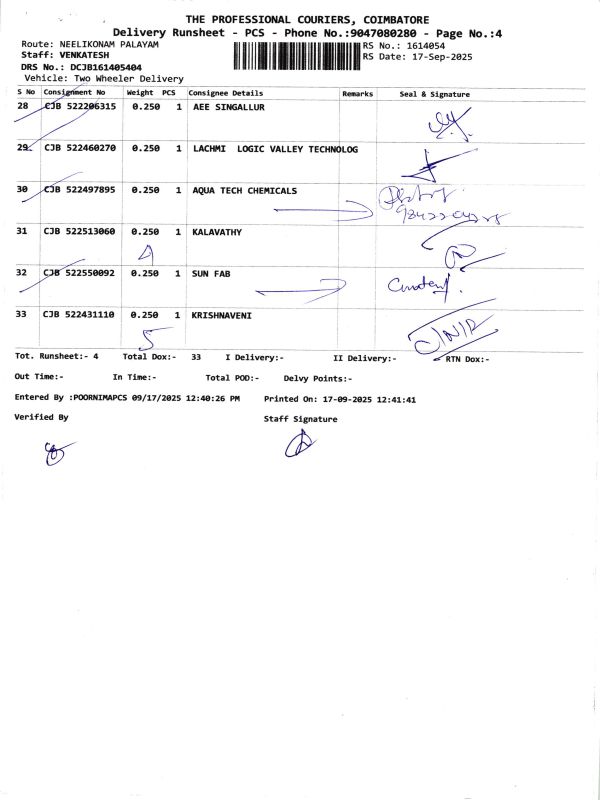 THE PROFESSIONAL COURIERS, COIMBATORE
Delivery Runsheet - PCS - Phone No.:9047080280 - Page No.:4
Route: NEELIKONAM PALAYAM RS No.: 1614054
Staff: VENKATESH RS Date: 17-Sep-2025
DRS No.: DCJB161405404
Vehicle: Two Wheeler Delivery
S No Consignment No Weight PCS Consignee Details Remarks Seal & Signature
28 CJB 522206315 0.250 1 AEE SINGALLUR
29 CJB 522460270 0.250 1 LACHMI LOGIC VALLEY TECHNOLOG
30 CJB 522497895 0.250 1 AQUA TECH CHEMICALS
31 CJB 522513060 0.250 1 KALAVATHY
32 CJB 522550092 0.250 1 SUN FAB
33 CJB 522431110 0.250 1 KRISHNAVENI
5
Tot. Runsheet:- 4 Total Dox:- 33 I Delivery:- II Delivery:- RTN Dox:-
Out Time:- In Time:- Total POD:- Delvy Points:-
Entered By :POORNIMAPCS 09/17/2025 12:40:26 PM Printed On: 17-09-2025 12:41:41
Verified By Staff Signature